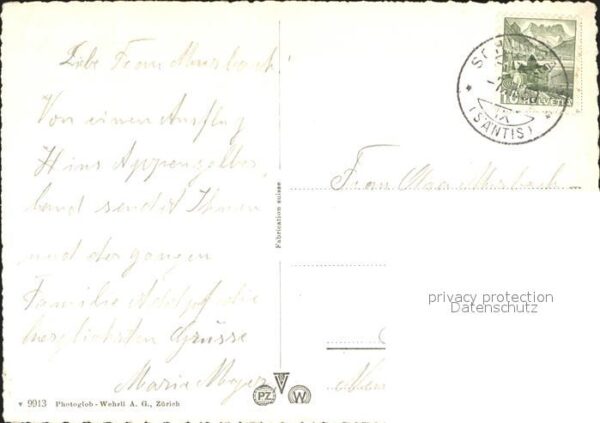 Liebe Frau Morsbach!
Von einem Ausflug
ins Appenzeller
land sendet Ihnen
und der ganzen
Familie die
herzlichsten Grüsse
Marie Meyer
Fabrication suisse
10 HELVETIA
(SÄNTIS)
Frau Morsbach
privacy protection
Datenschutz
9913 Photoglob-Wehrli A. G., Zürich
PZ V W